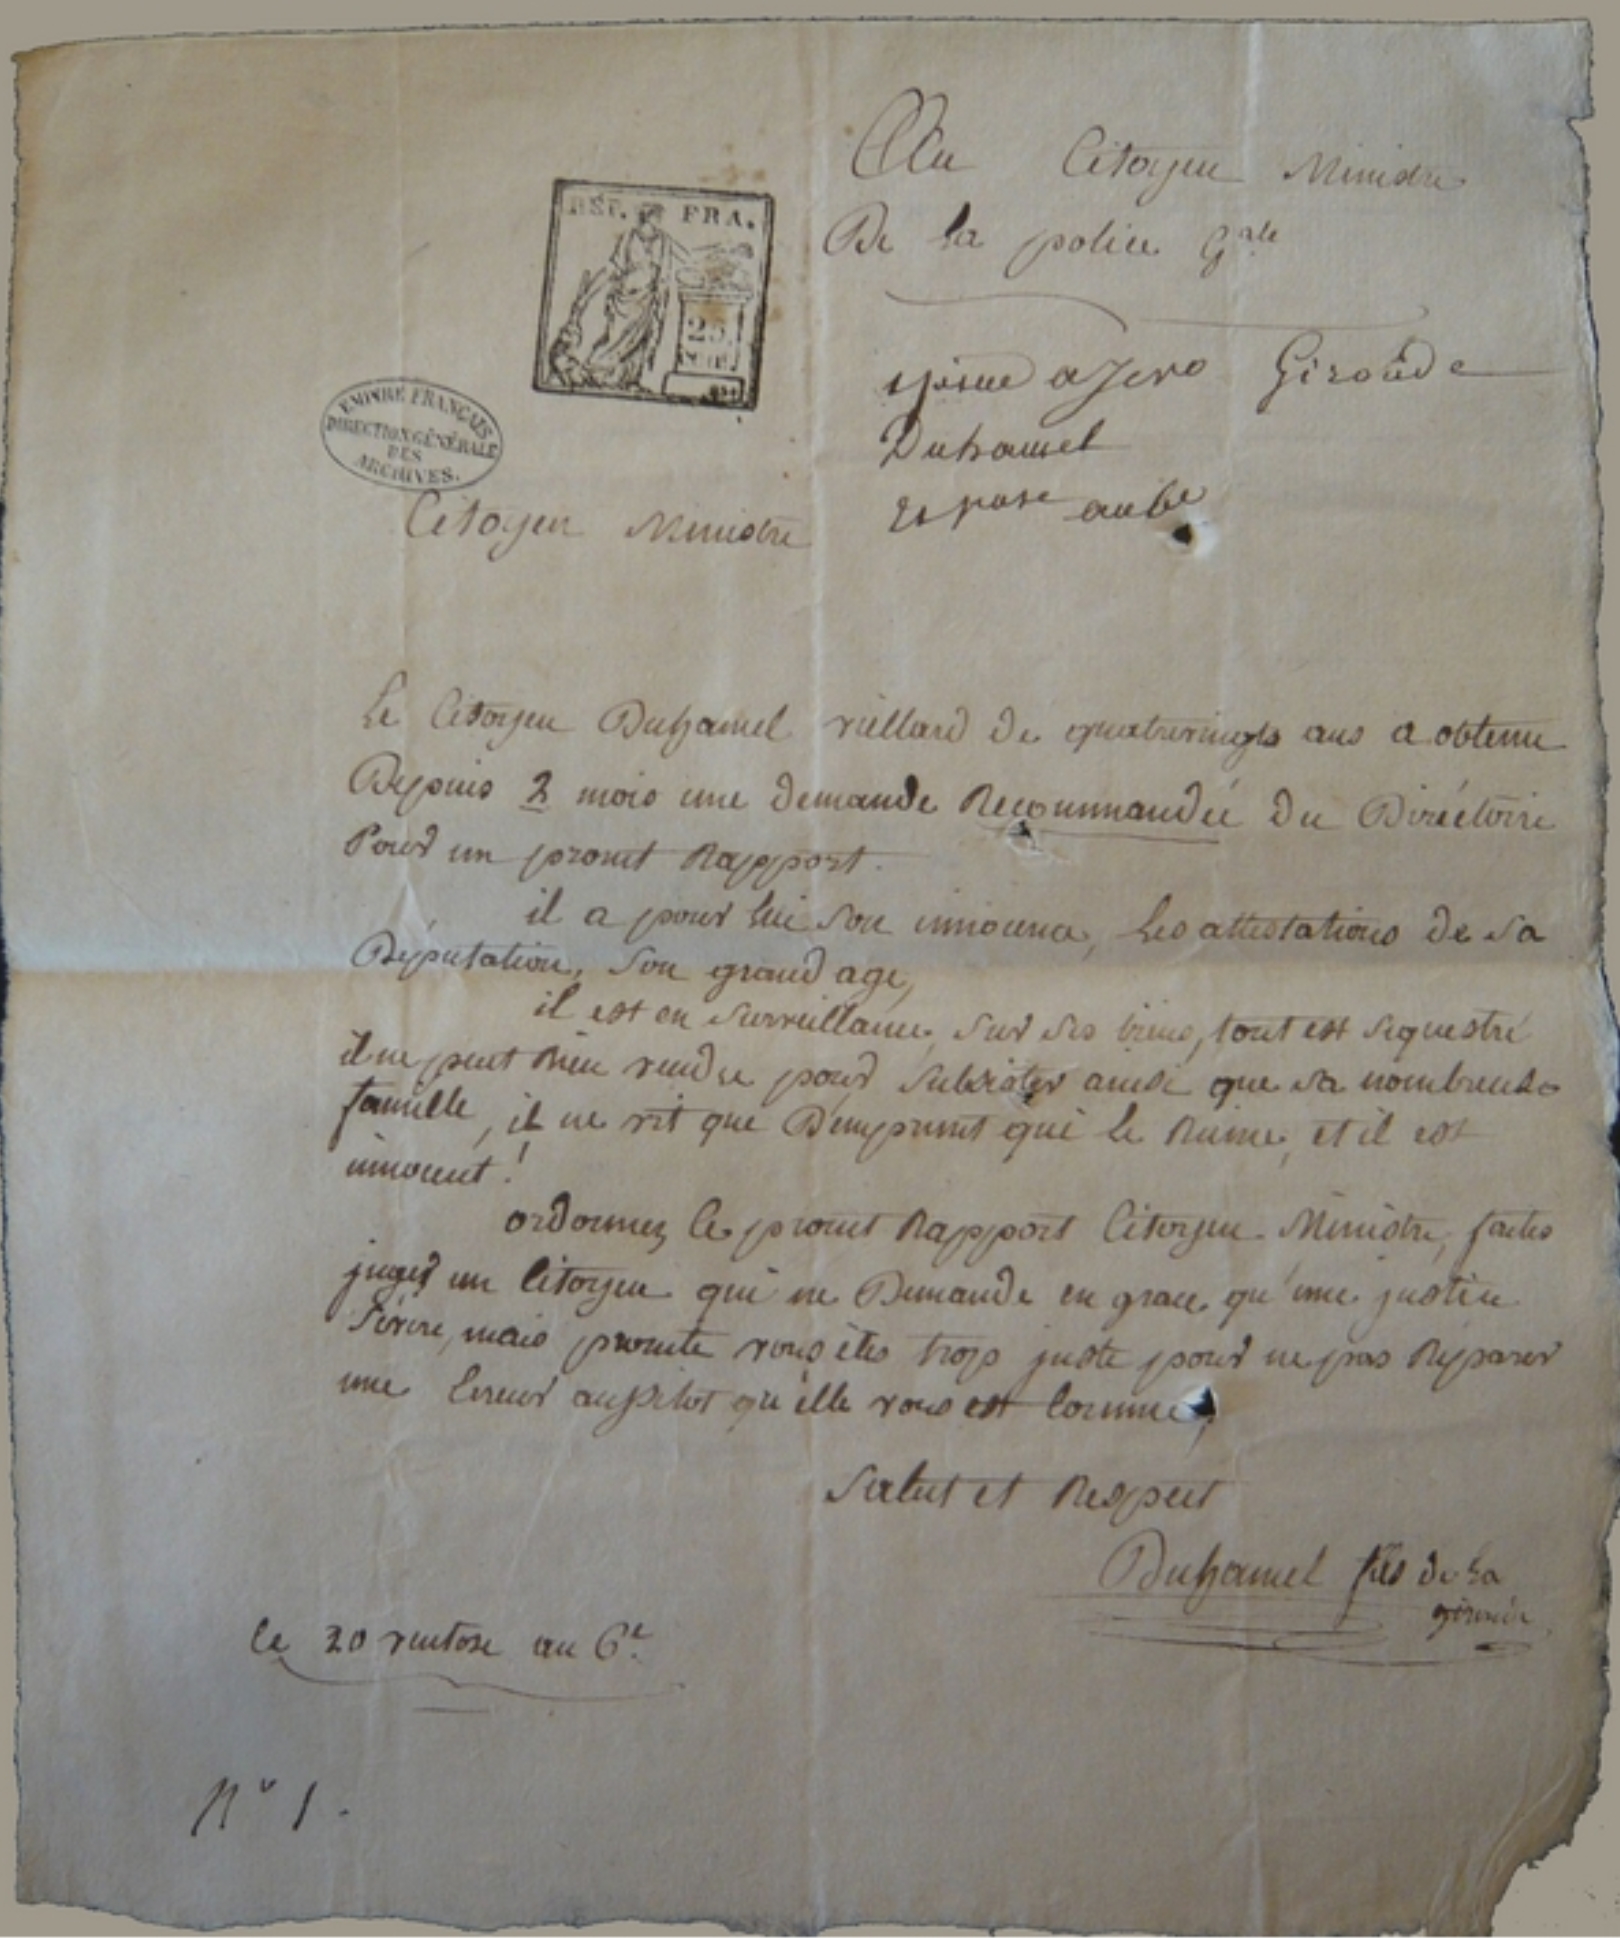 Au Citoyen Ministre
De la police Gale
RÉP. FRA.
25.
Giroude
Duhamel
EMPIRE FRANÇAIS
DIRECTION GÉNÉRALE
DES
ARCHIVES.
Citoyen Ministre
Le Citoyen Duhamel viellard de quatrevingts ans a obtenu
Depuis 2 mois une demande Recommandée du Diréctoire
Pour un promt Rapport.
il a pour lui son innocence, les attestations de sa
Députation, son grand age,
il est en surveillance, sur ses biens, tout est sequestré
il ne peut rien vendre pour subsister ainsi que sa nombreuse
famille, il ne vit que D'emprunt qui le Ruine, et il est
innocent !
ordonnez le promt Rapport Citoyen Ministre, faites
juger un Citoyen qui ne Demande en grace qu'une justice
sévere, mais promte vous êtes trop juste pour ne pas Réparer
une Erreur aussitot qu'elle vous est Connue,
Salut et Respect
Duhamel fils de la
gironde
le 20 ventose an 6e.
No 1.